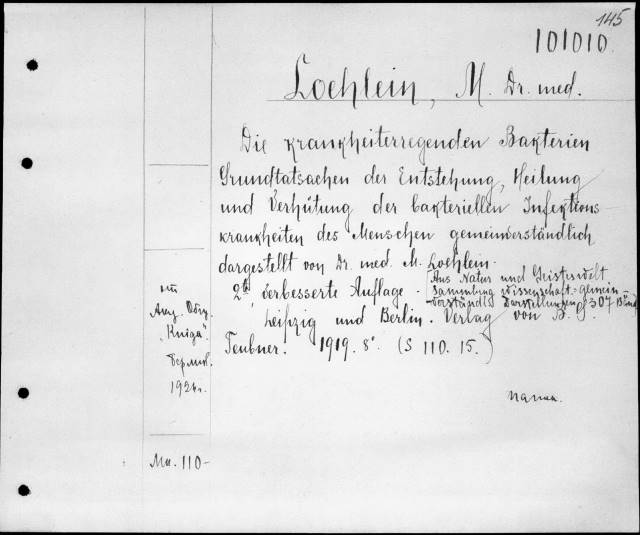 145
101010.
Loehlein, M. Dr. med.
Die krankheiterregenden Bakterien
Grundtatsachen der Entstehung, Heilung
und Verhütung der bakteriellen Infektions
krankheiten des Menschen gemeinverständlich
dargestellt von Dr. med. M. Loehlein.
2te verbesserte Auflage -
Aus Natur und Geisteswelt
Sammlung wissenschaft.=gemein-
verständl. Darstellungen 307 Band
Leipzig und Berlin. Verlag von B. G.
Teubner. 1919. 8°. (S 110. 15.)
"Книга".
Берлин.
1924г.
папка.
Ма. 110-